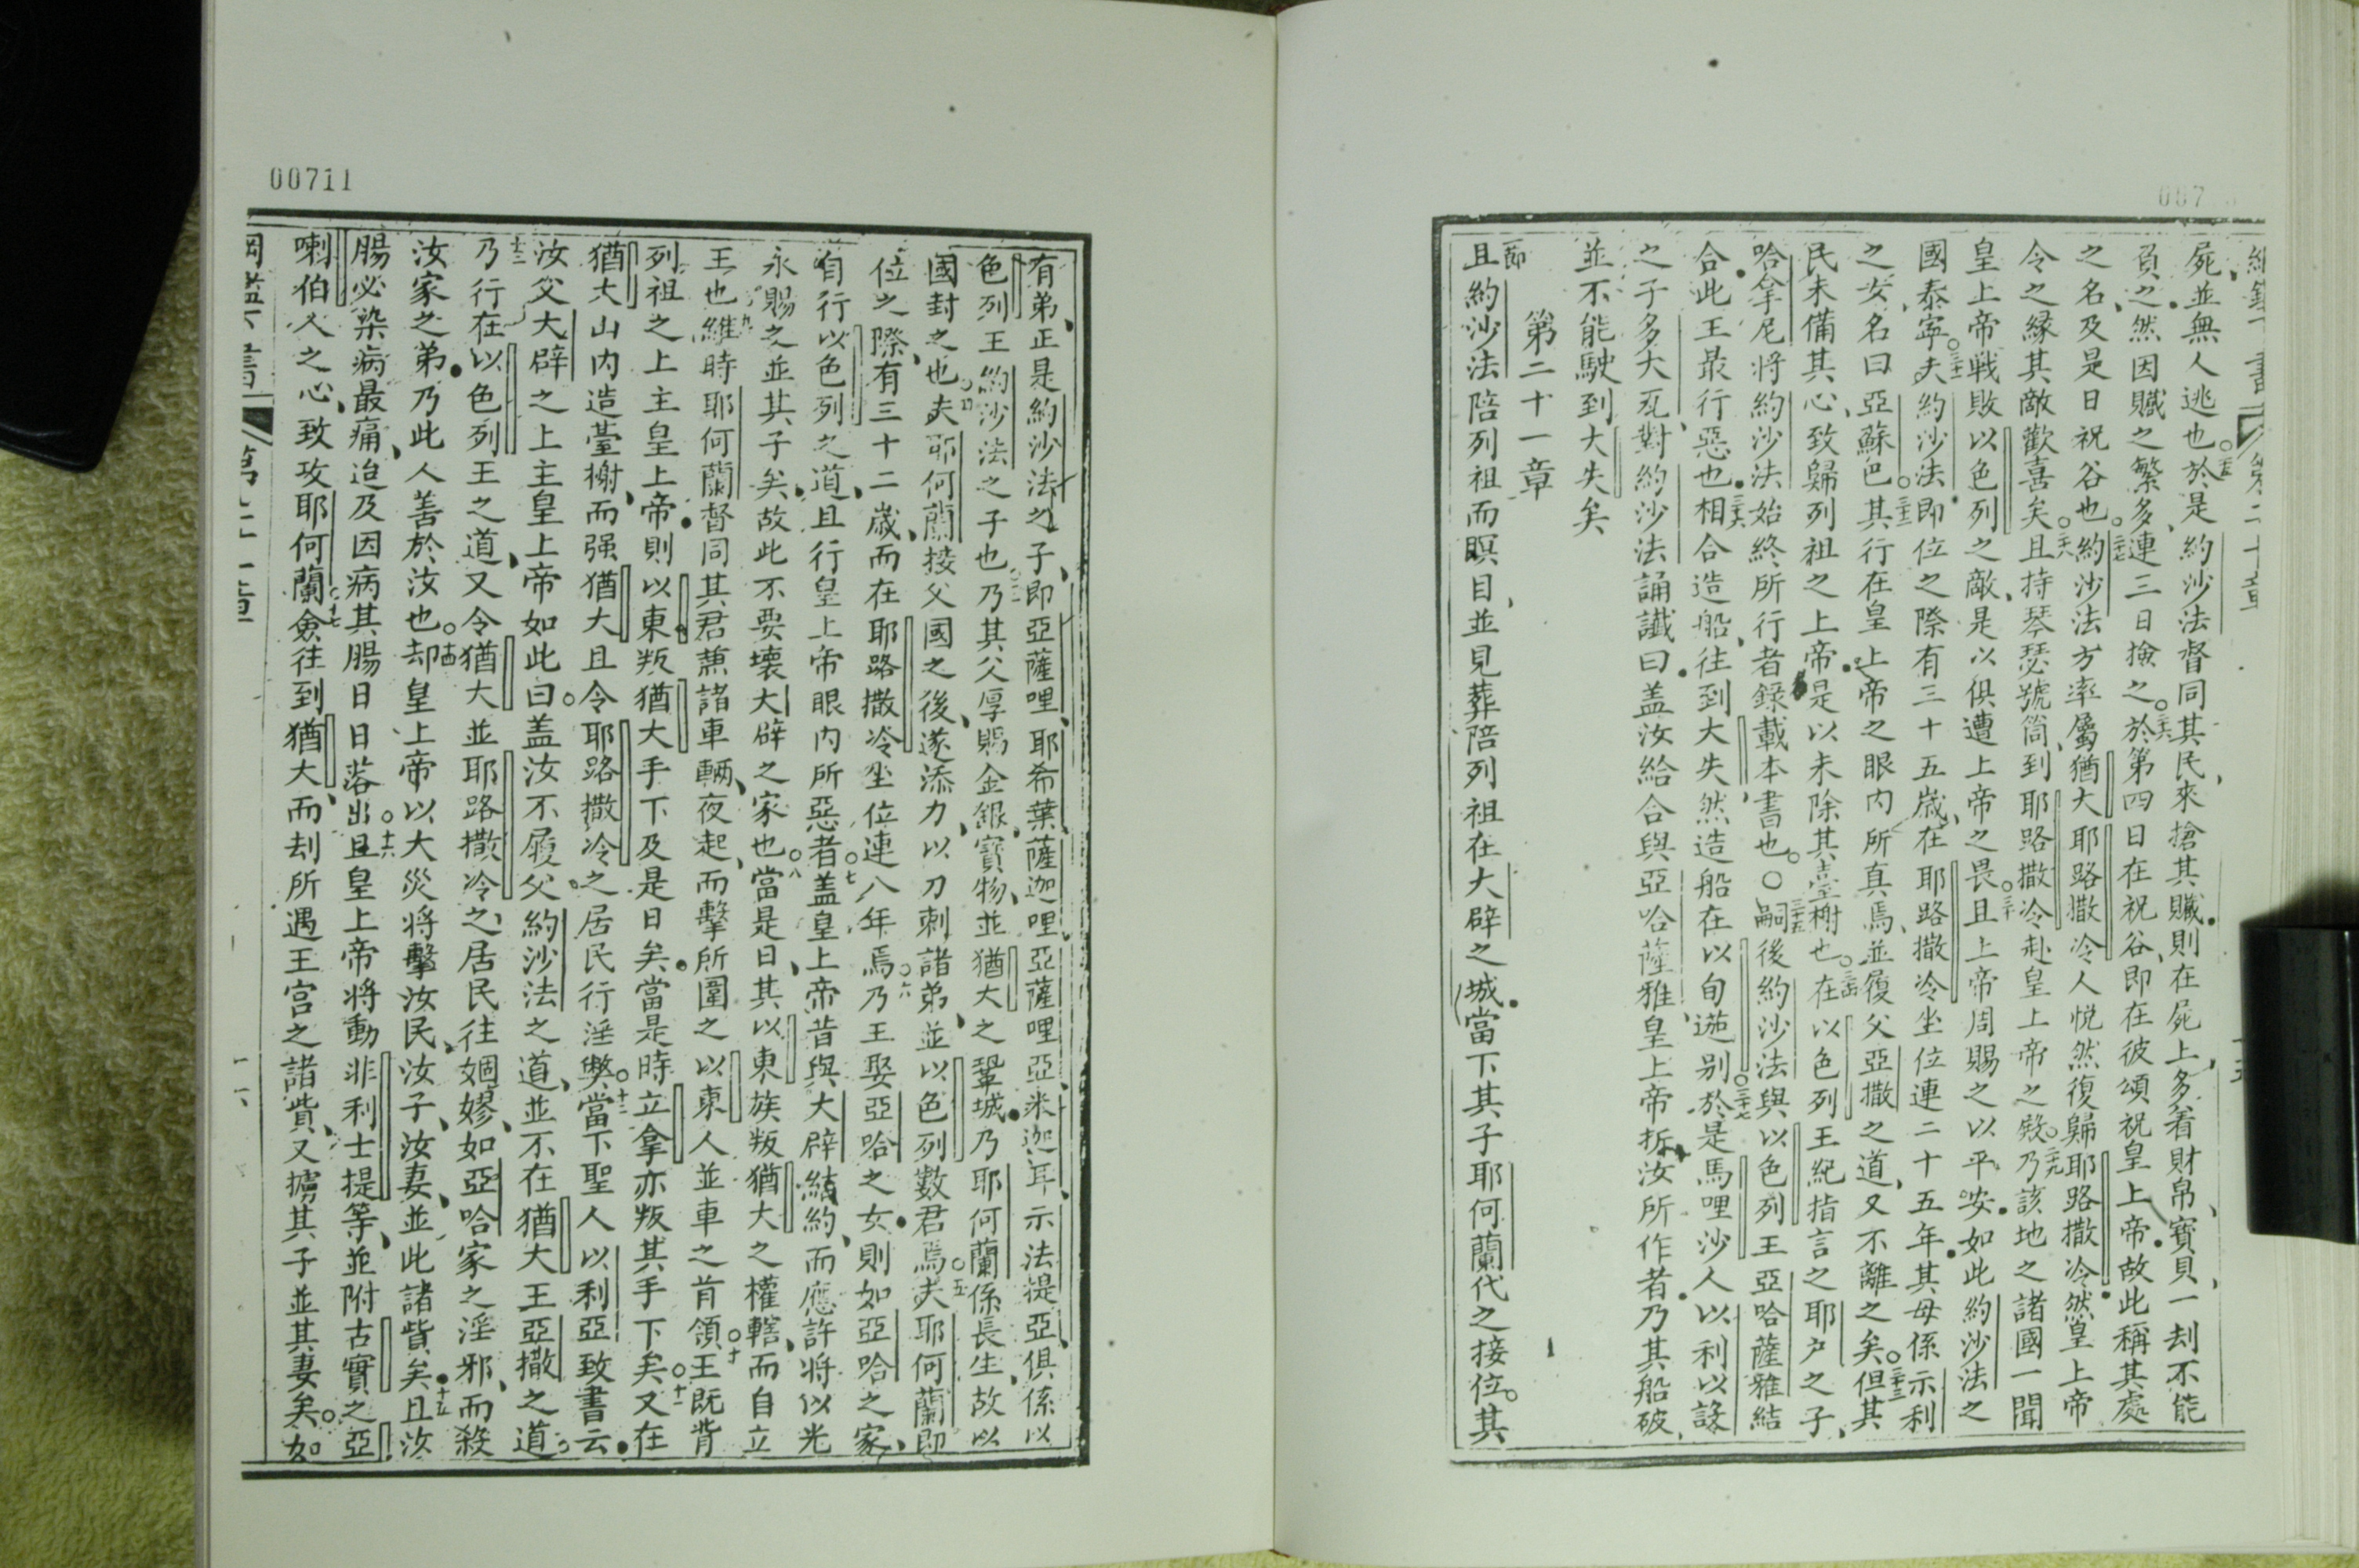 屍並無人逃也○二五於是約沙法督同其民來搶其贓則在屍上多着財帛寶貝一刦不能
負之然因贓之繁多連三日撿之○二六於第四日在祝谷即在彼頌祝皇上帝故此稱其處
之名及是日祝谷也○二七約沙法方率屬猶大耶路撒冷人悦然復歸耶路撒冷然皇上帝
令之緣其敵歡喜矣○二八且持琴瑟號筒到耶路撒冷赴皇上帝之殿○二九乃該地之諸國一聞
皇上帝戰敗以色列之敵是以俱遭上帝之畏○三十且上帝周賜之以平安如此約沙法之
國泰寧○三一夫約沙法即位之際有三十五歲在耶路撒冷坐位連二十五年其母係示利
之女名曰亞蘇巴○三二其行在皇上帝之眼内所真焉並履父亞撒之道又不離之矣○三三但其
民未備其心致歸列祖之上帝是以未除其臺榭也○三四在以色列王紀指言之耶户之子
哈拿尼將約沙法始終所行者錄載本書也○○三五嗣後約沙法與以色列王亞哈薩雅結
合此王最行惡也○三六相合造船往到大失然造船在以旬迦别○三七於是馬哩沙人以利以諺
之子多大瓦對約沙法誦讖曰盖汝給合與亞哈薩雅皇上帝拆汝所作者乃其船破
並不能駛到大失矣
第二十一章
一節且約沙法陪列祖而瞑目並見葬陪列祖在大辟之城當下其子耶何蘭代之接位○其
00711
有弟正是約沙法之子即亞薩哩耶希葉薩迦哩亞薩哩亞米迦耳示法提亞俱係以
色列王約沙法之子也○三乃其父厚賜金銀寶物並猶大之鞏城乃耶何蘭係長生故以
國封之也○四夫耶何蘭接父國之後遂添力以刀刺諸弟並以色列數君焉○五夫耶何蘭即
位之際有三十二歲而在耶路撒冷坐位連八年焉○六乃王娶亞哈之女則如亞哈之家
有行以色列之道且行皇上帝眼内所惡者○七盖皇上帝昔與大辟結約而應許將以光
永賜之並其子矣故此不要壊大辟之家也○八當是日其以東族叛猶大之權轄而自立
王也○九維時耶何蘭督同其君蕭諸車輛夜起而擊所圍之以東人並車之首領○十王既背
列祖之上主皇上帝則以東叛猶大手下及是日矣當是時立拿亦叛其手下矣○十一又在
猶大山内造臺榭而强猶大且令耶路撒冷之居民行淫弊○十二當下聖人以利亞致書云
汝父大辟之上主皇上帝如此曰○盖汝不履父約沙法之道並不在猶大王亞撒之道
十三乃行在以色列王之道又令猶大並耶路撒冷之居民往婟嫪如亞哈家之淫邪而殺
汝家之弟乃此人善於汝也○十四却皇上帝以大災將擊汝民汝子汝妻並此諸貲矣○十五且汝
腸必染病最痛迨及因病其腸日日落出○十六且皇上帝將動非利士提等並附古實之亞
喇伯人之心致攻耶何蘭○十七僉往到猶大而刦所遇王宫之諸貲又擄其子並其妻矣○如